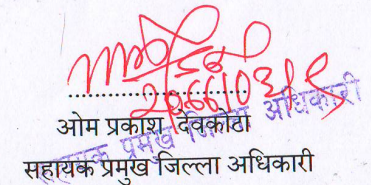 २०६६।०३।१९
ओम प्रकाश देवकोटा
सहायक प्रमुख जिल्ला अधिकारी
सहायक प्रमुख जिल्ला अधिकारी